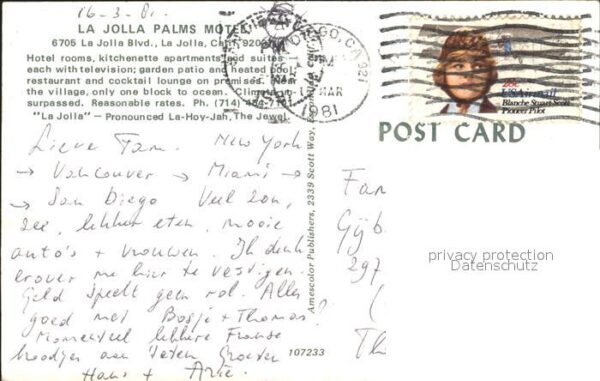 16-3-81.
LA JOLLA PALMS MOTEL
6705 La Jolla Blvd., La Jolla, Calif. 920
Hotel rooms, kitchenette apartments and suites
each with television; garden patio and heated pool
restaurant and cocktail lounge on premises. In
the village, only one block to ocean. Climate un-
surpassed. Reasonable rates. Ph. (714) 454-7101
"La Jolla" — Pronounced La-Hoy-Jah, The Jewel.
Lieve Fam. New York
→ Vancouver → Miami →
→ San Diego Veel zon,
zee, lekker eten, mooie
auto's + vrouwen. Ik denk
erover me hier te vestigen.
Geld speelt geen rol. Alles
goed met Bosje + Thomas?
Momenteel lekkere Franse
broodjes aan 't eten Groeten
Hans + Arie.
Amescolor Publishers, 2339 Scott Way,
107233
DIEGO, CA 921
MAR
1981
28c
USAirmail
Blanche Stuart Scott
Pioneer Pilot
POST CARD
Fam
Gijb
297
(
Th
privacy protection
Datenschutz